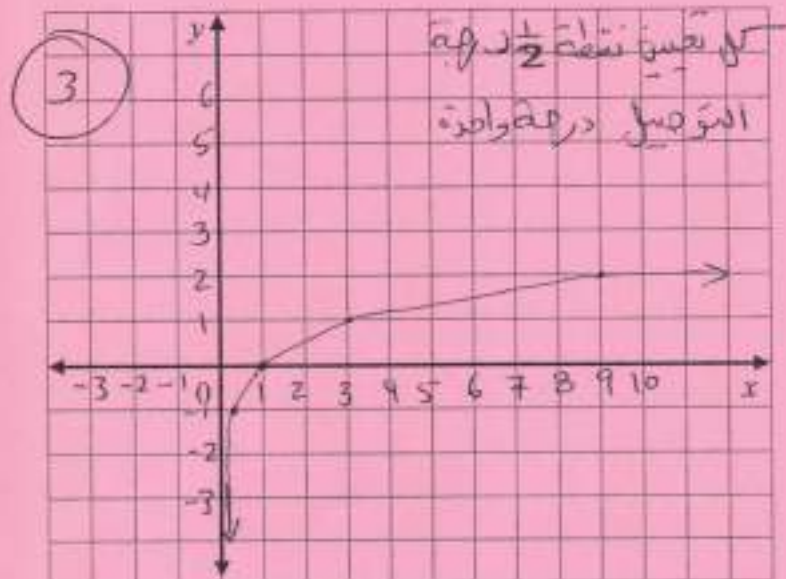 كل تعيين نقطة 1/2 درجة
التوصيل درجة واحدة
3
y
6
5
4
3
2
1
-3 -2 -1 0 1 2 3 4 5 6 7 8 9 10 x
-1
-2
-3